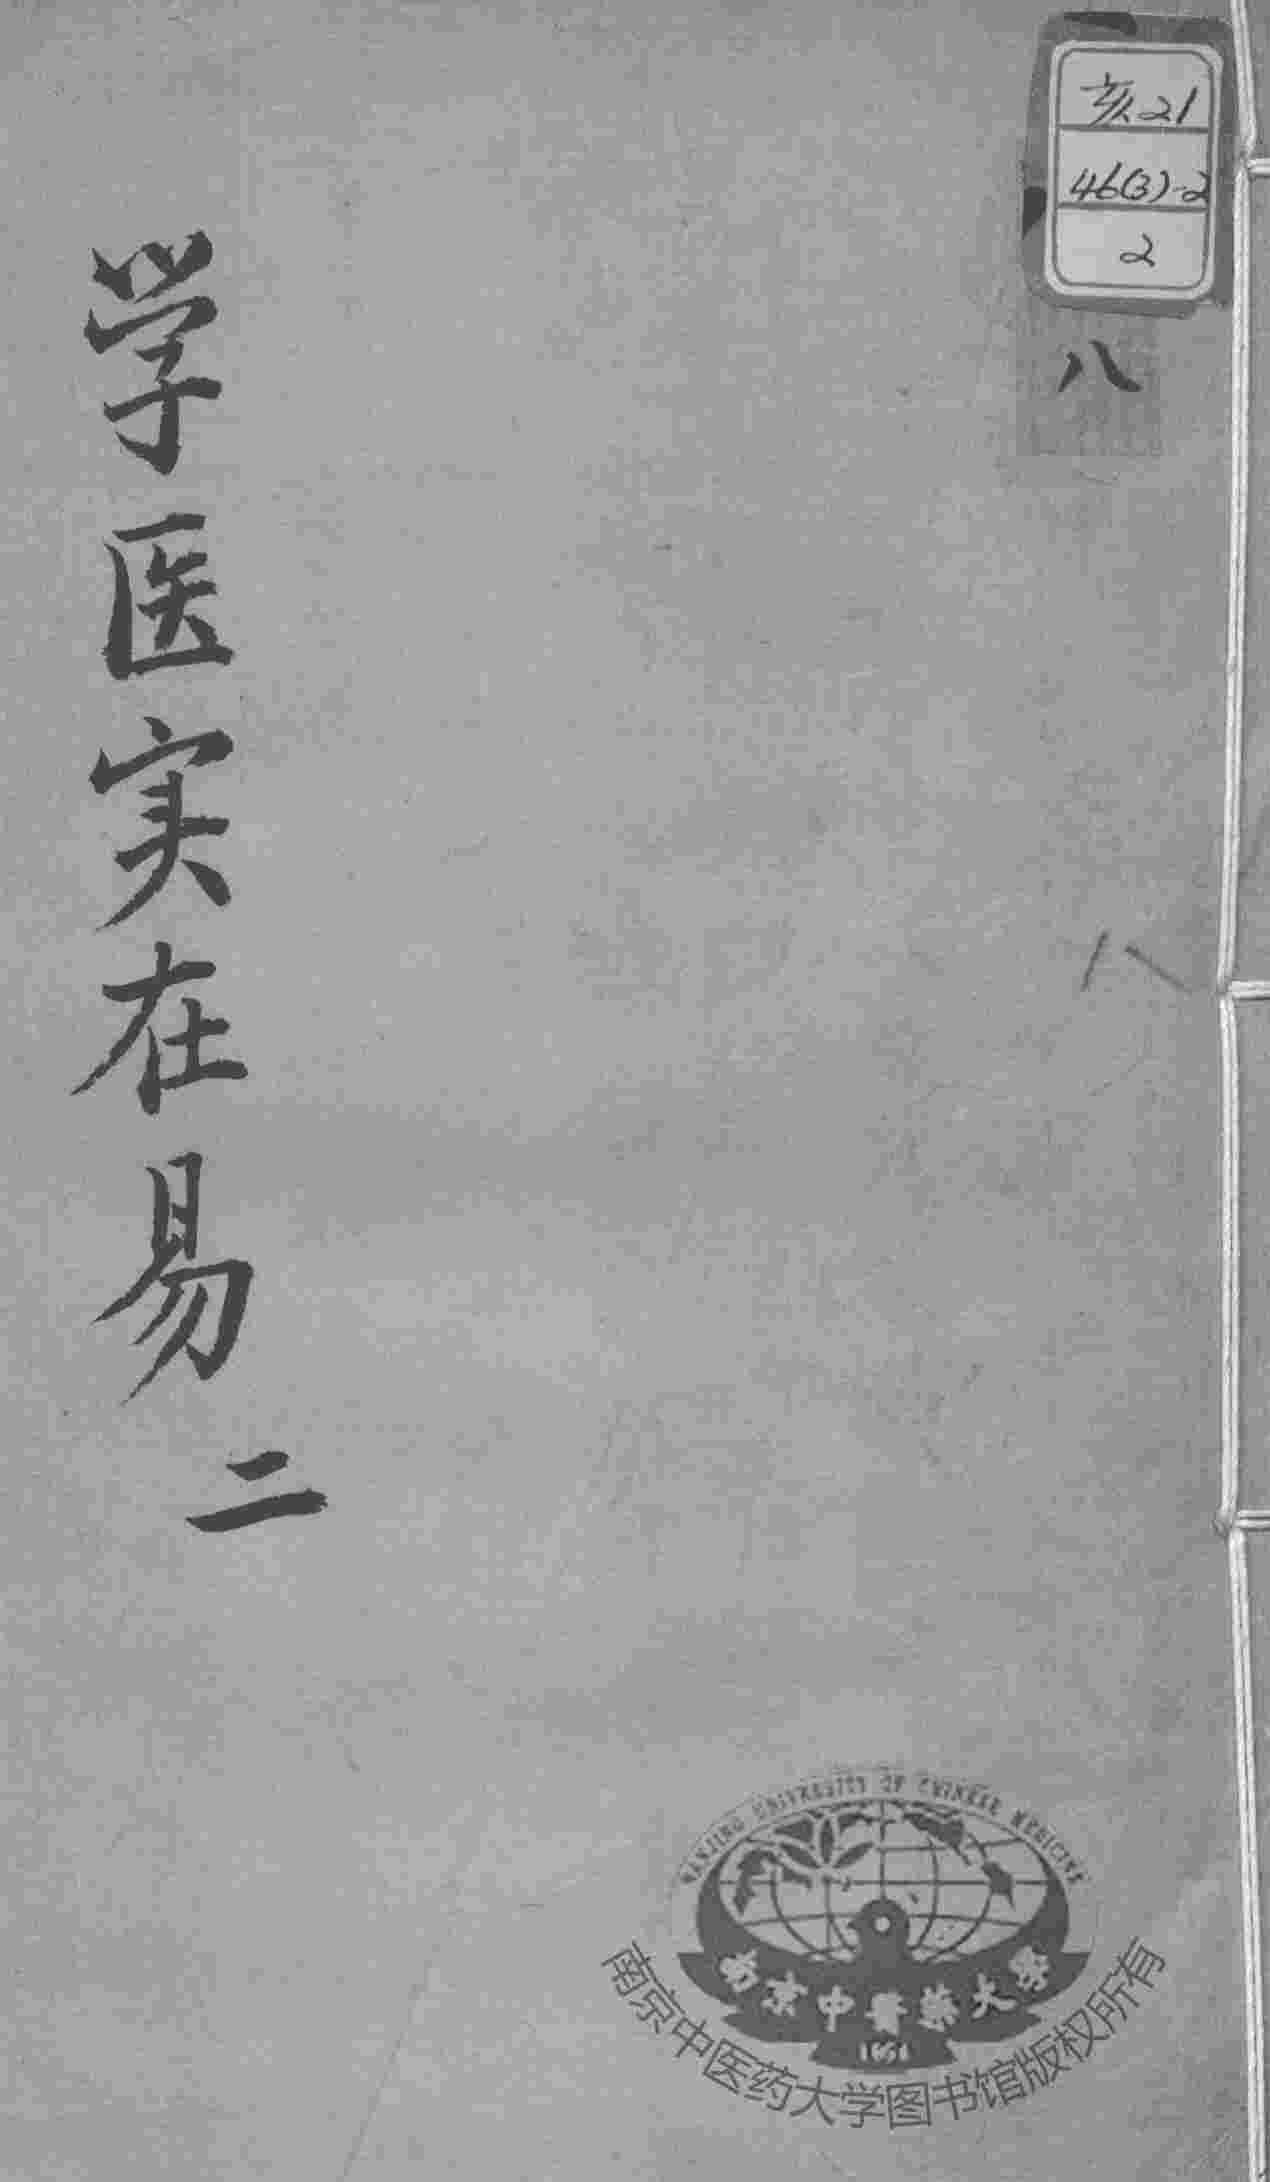 亥21
46(3)-2
2
八
八
学医实在易
二
NANJING UNIVERSITY OF CHINESE MEDICINE
南京中醫藥大學
1954
南京中医药大学图书馆版权所有